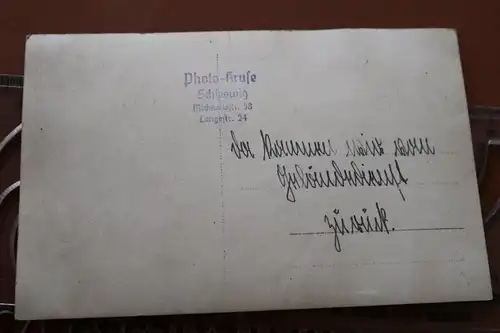 Photo-Kruse
Schleswig
Michaelisstr. 58
Langestr. 24
Da kommen wir vom
Geländedienst
zurück.